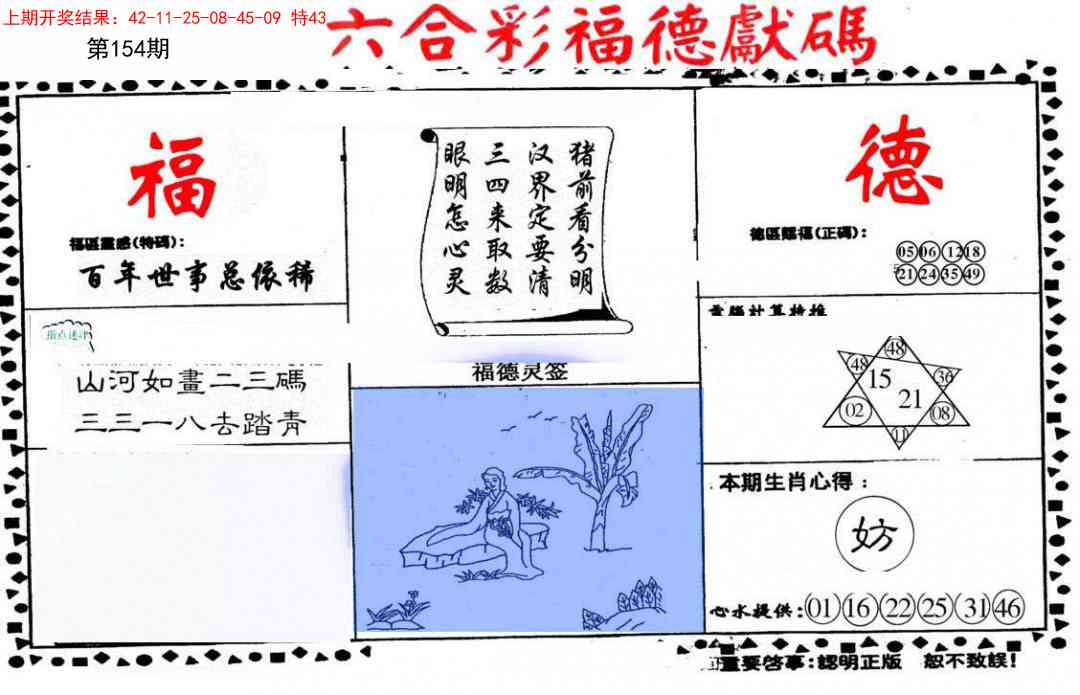 上期开奖结果: 42-11-25-08-45-09 特43
第154期
六合彩福德獻碼
福
福區靈感(特碼):
百年世事总依稀
猪前看分明
汉界定要清
三四来取数
眼明怎心灵
德
德區賜福(正碼):
05 06 12 18
21 24 35 49
指点迷津
山河如畫二三碼
三三一八去踏青
福德灵签
48
48 15 36
21
02 08
11
本期生肖心得:
妨
心水提供: 01 16 22 25 31 46
重要啓事:認明正版 恕不致誤!